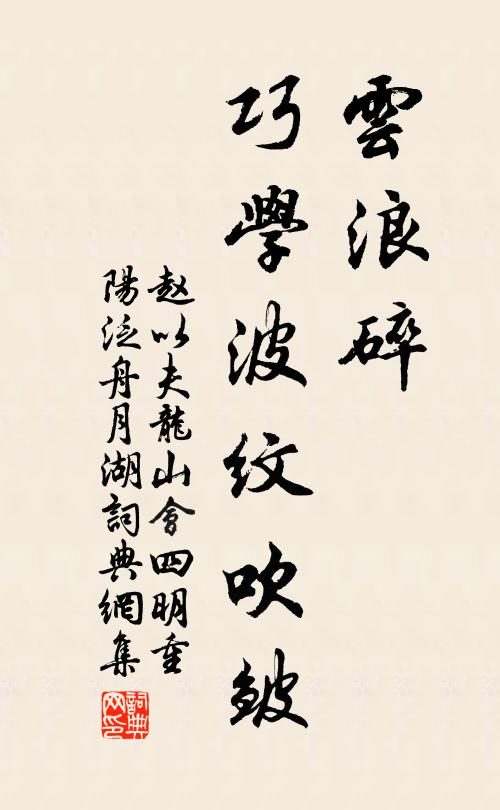 雲浪碎
巧學波紋吹皴
赵以夫龍山會四明重
陽泛舟月湖詞典網集
詞典
网印